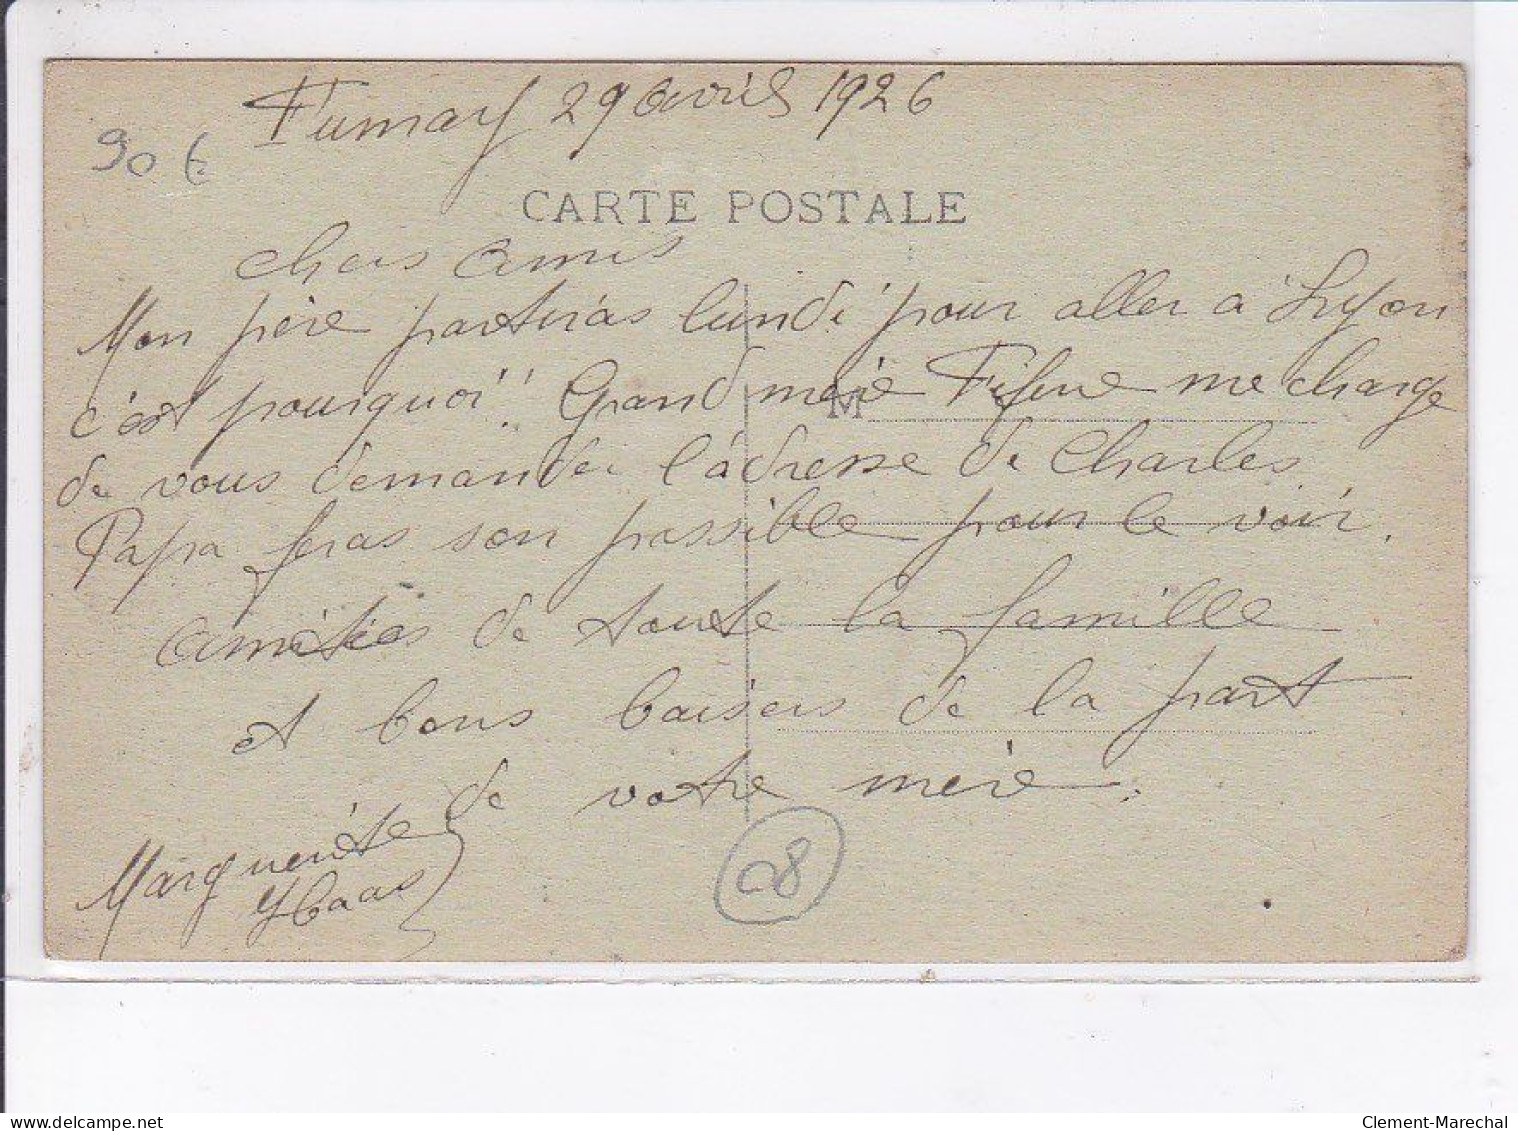 Fumay 29 avril 1926
90 €
CARTE POSTALE
chers amis
Mon père partiras lundi pour aller à Lyon
c'est pourquoi ! Grand mère Fifine me charge
M
de vous demander l'adresse de Charles.
Papa feras son possible pour le voir.
amitiés de toute la famille
et bons baisers de la part
de votre mère.
Marguerite
Haas
08
www.delcampe.net
Clement-Marechal